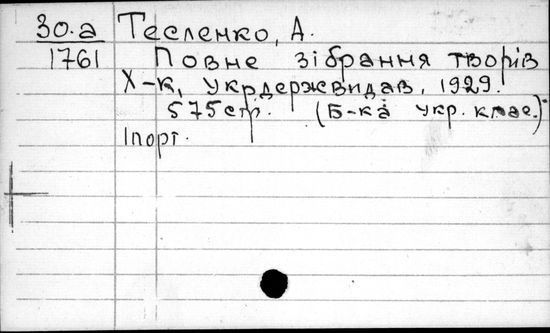 30.а Тесленко, А.
1761 Повне зібрання творів
Х-к, Укрдержвидав, 1929.
575стр. (Б-ка укр. клас.)
1порт.